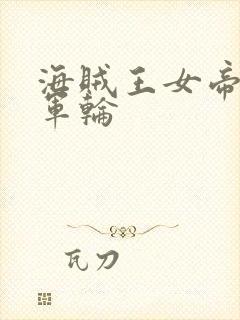 海賊王女帝
軍輪
瓦刀